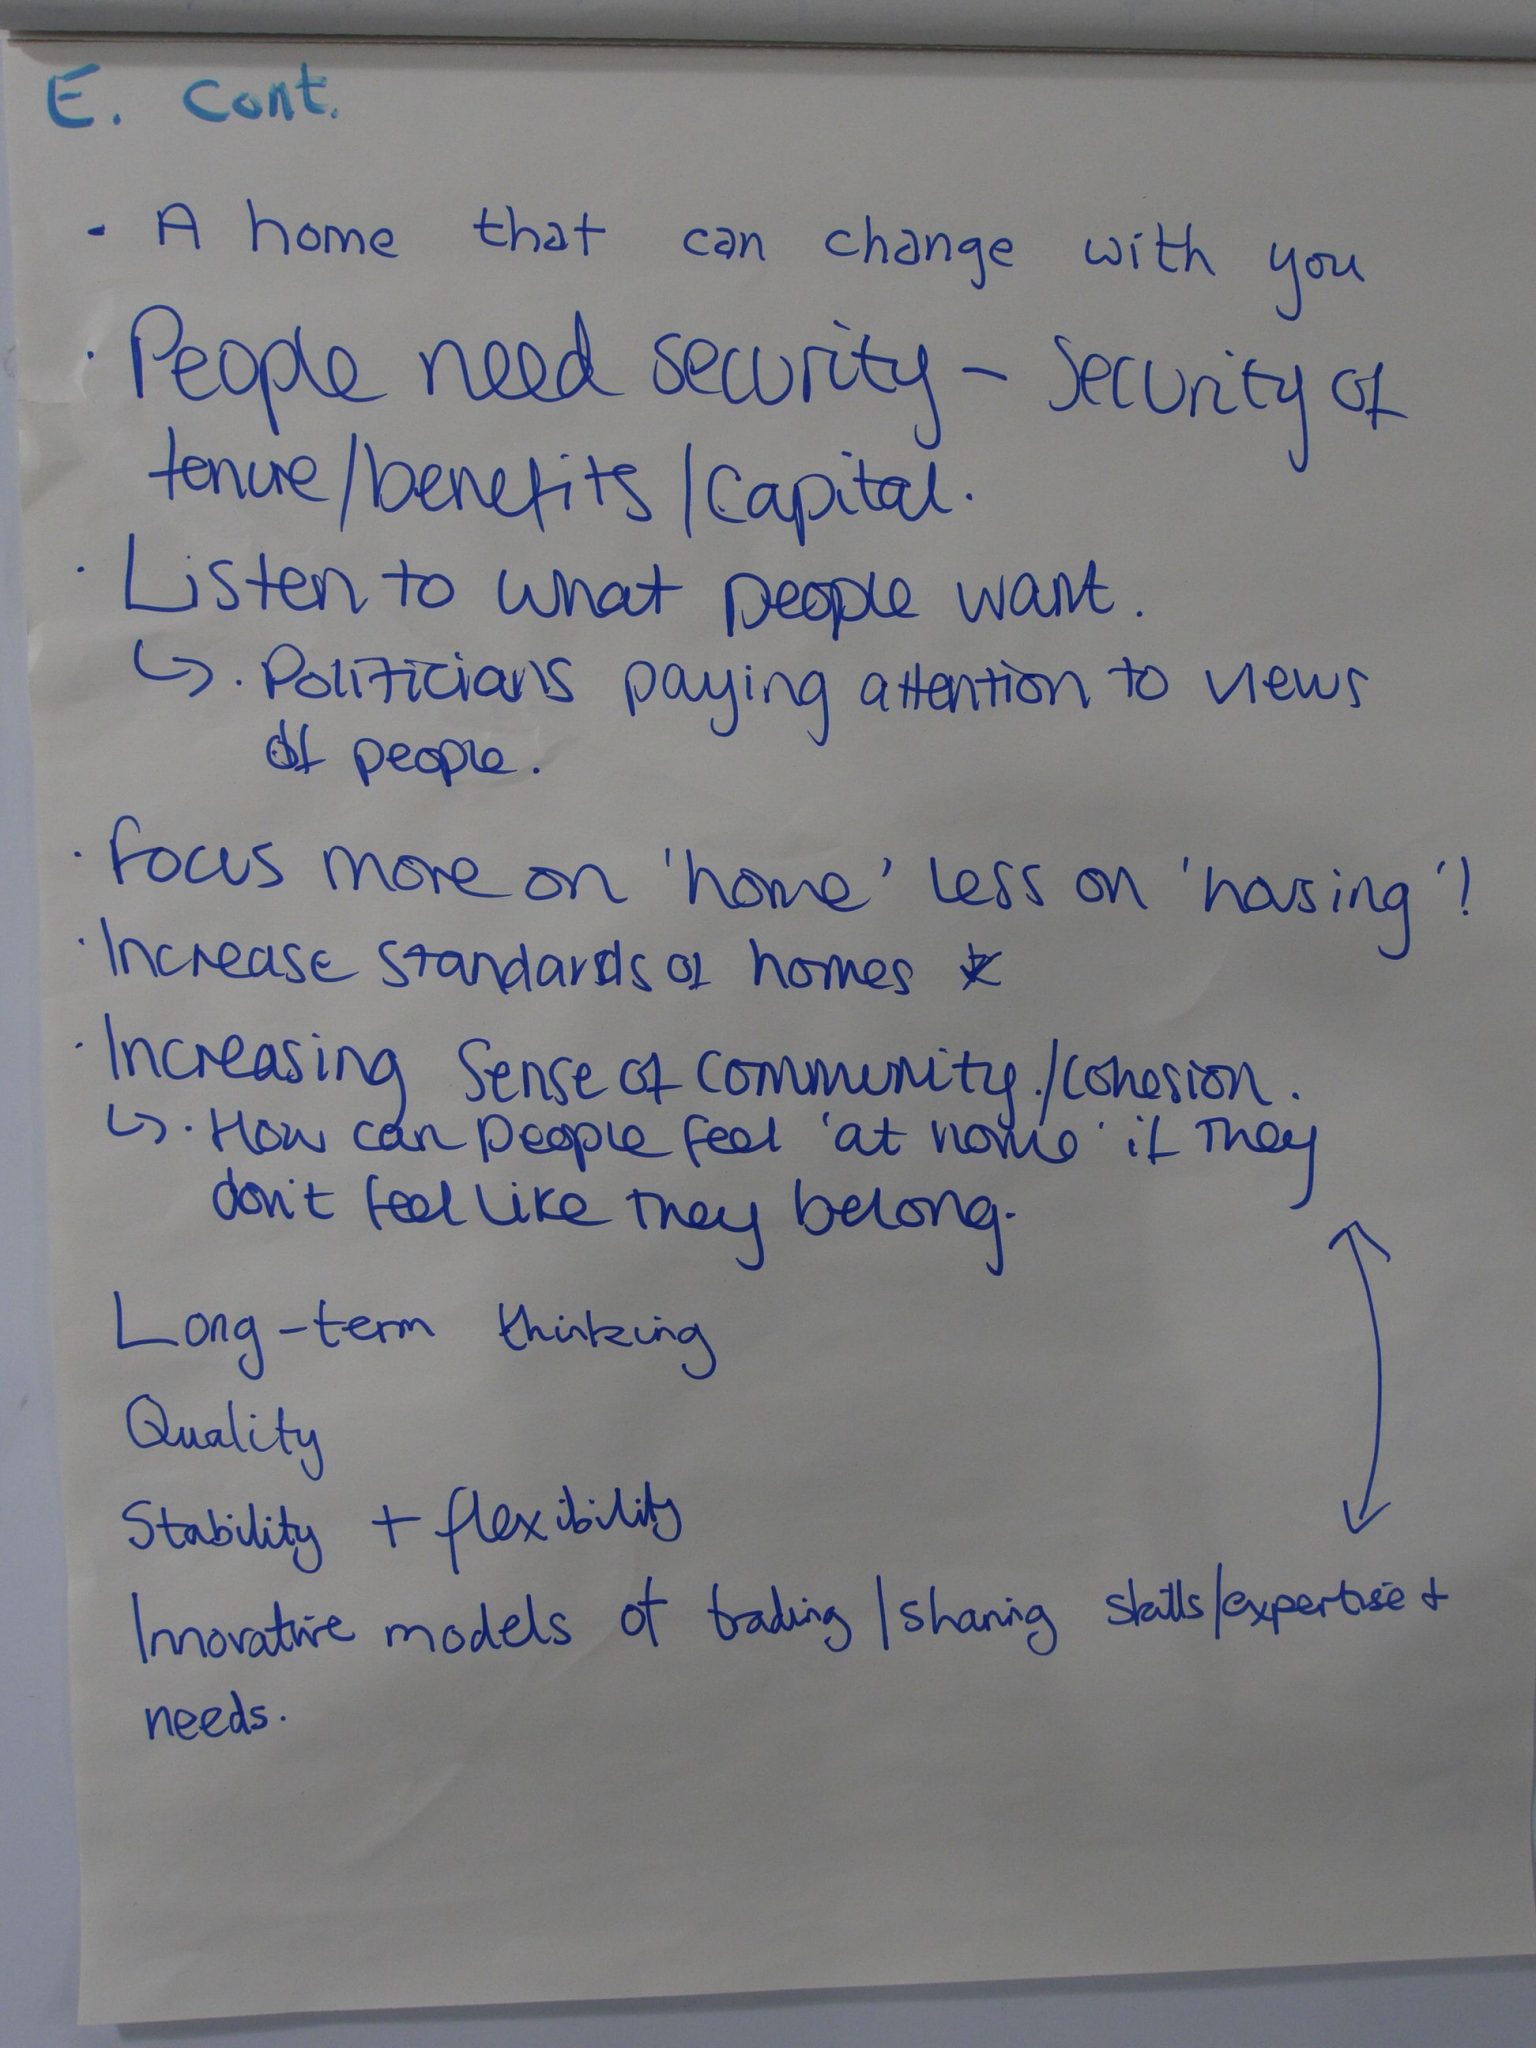 E. Cont.
• A home that can change with you
• People need security – Security of
tenure/benefits/Capital.
• Listen to what people want.
↳ • Politicians paying attention to views
of people.
• Focus more on 'home' less on 'housing'!
• Increase standards of homes *
• Increasing Sense of community./cohesion.
↳ • How can people feel 'at home' if they
don't feel like they belong.
Long-term thinking
Quality
Stability + flexibility
Innovative models of trading/sharing skills/expertise +
needs.